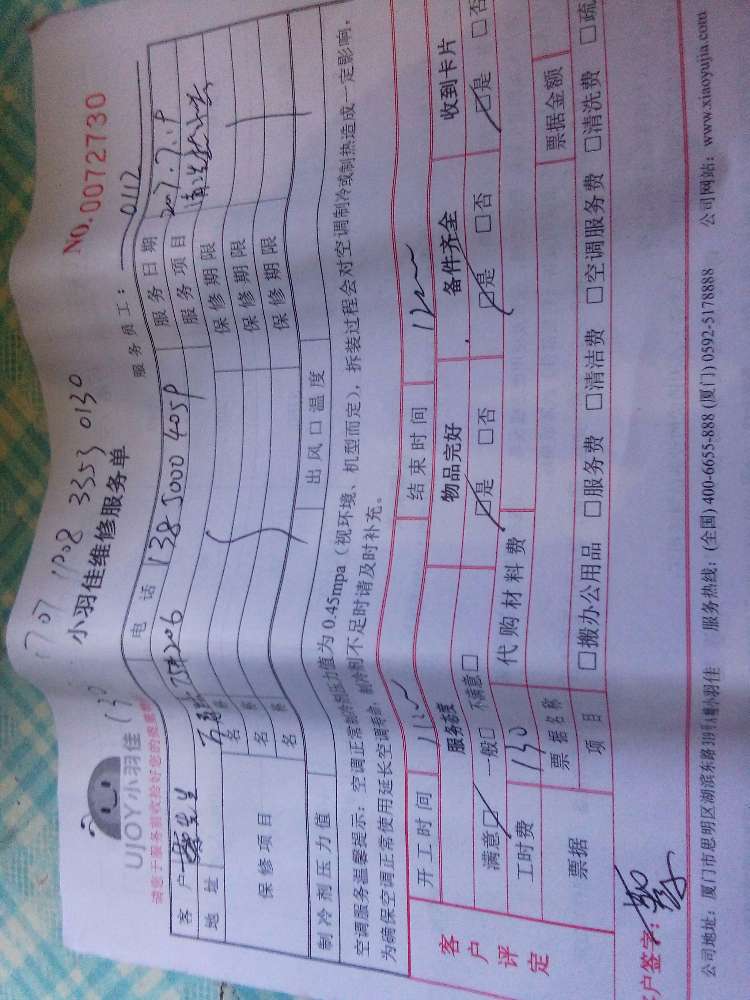 1707 1708 3353 0130
UJOY小羽佳
小羽佳维修服务单
NO.0072730
请您于服务前收拾好您的贵重物
服务员工：0112
客户 先生 电话 138 5000 4059 服务日期 2017.7.19
地址 206 服务项目 清洗
保修项目 名称 保修期限
名称 保修期限
名称 保修期限
制冷剂压力值 出风口温度
空调服务温馨提示：空调正常制冷剂压力值为 0.45mpa（视环境、机型而定），拆装过程会对空调制冷或制热造成一定影响，
为确保空调正常使用延长空调寿命，制冷剂不足时请及时补充。
客户评定
开工时间 结束时间
服务态度 物品完好 备件齐全 收到卡片
满意□ 一般□ 不满意□ □是 □否 □是 □否 □是 □否
工时费 130 代购材料费
票据 票据名称 票据金额
项目 □搬办公用品 □服务费 □清洁费 □空调服务费 □清洗费 □疏
户签字：
公司地址：厦门市思明区湖滨东路319号A幢小羽佳 服务热线：(全国) 400-6655-888 (厦门) 0592-5178888 公司网站：www.xiaoyujia.com